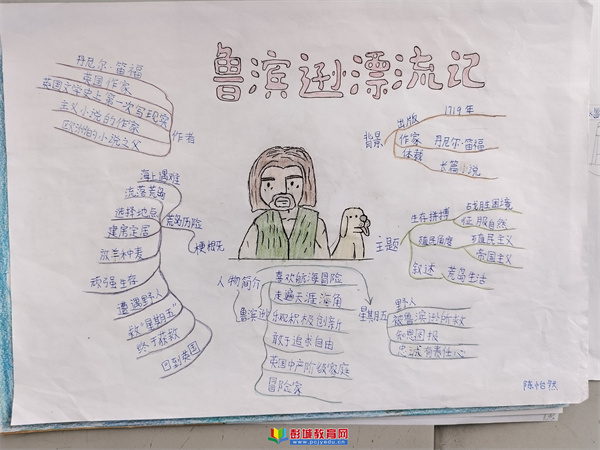 鲁滨逊漂流记
丹尼尔·笛福
英国作家
英国文学史上第一次写现实
主义小说的作家
欧洲的小说之父
作者
背景
出版
1719年
作家
丹尼尔·笛福
体裁
长篇小说
海上遇难
流落荒岛
选择地点
建房定居
放羊种麦
顽强生存
遭遇野人
救"星期五"
终于获救
回到英国
荒岛历险
梗概
主题
生存拼搏
战胜困境
征服自然
殖民角度
殖民主义
帝国主义
叙述
荒岛生活
人物简介
鲁滨逊
喜欢航海冒险
走遍天涯海角
乐观积极创新
敢于追求自由
英国中产阶级家庭
冒险家
星期五
野人
被鲁滨逊所救
知恩图报
忠诚有责任心
陈怡然
彭城教育网
www.pcjyedu.cn